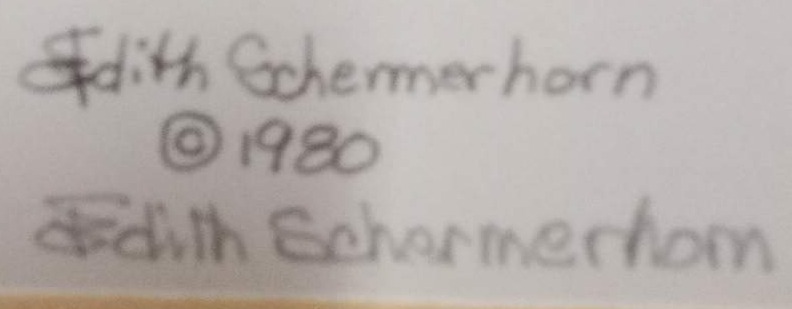 Edith Schermerhorn
© 1980
Edith Schermerhorn